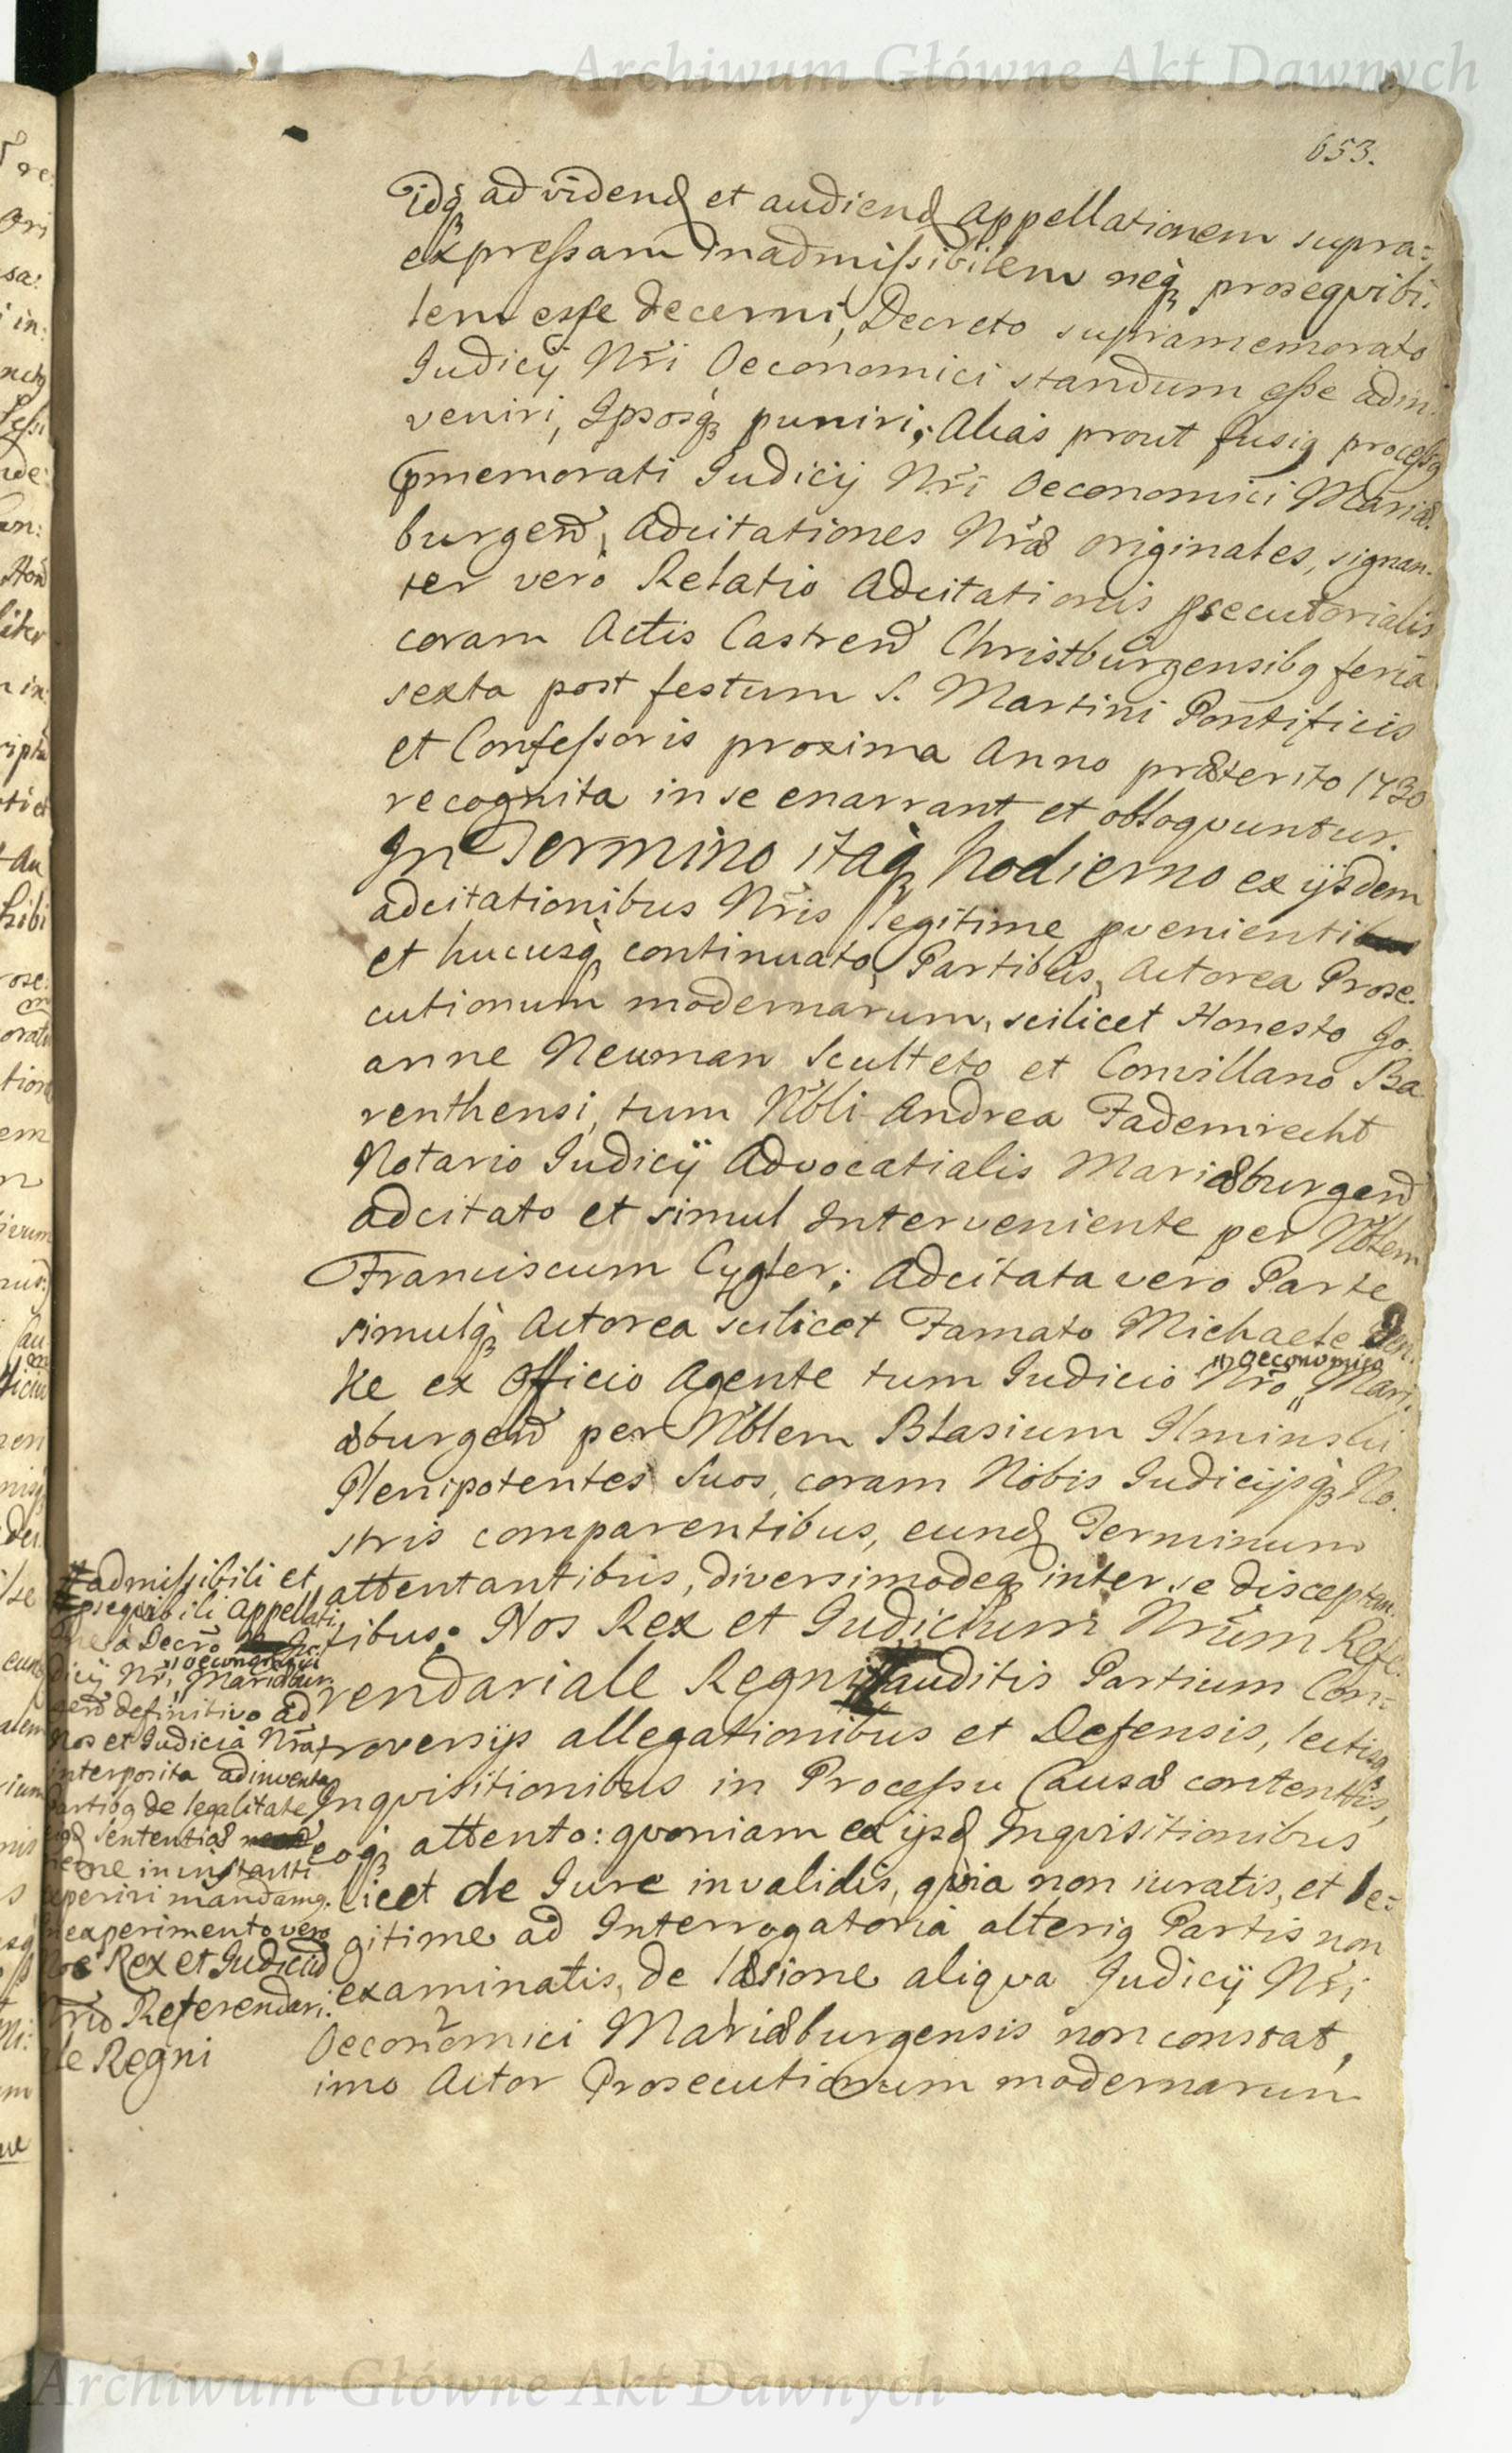 Archiwum Główne Akt Dawnych
653.
Idq̃ ad videnđ et audienđ Appellationem supra=
expressam inadmissibilem neq̃ proseqvibi:
lem esse decerni, Decreto supramemorato
Judicij Nri Oeconomici standum esse adin:
veniri, Ipsosq̃ puniri; Alias prout fusiq processq
pmemorati Judicij Nri Oeconomici Mariæ:
burgen, Adcitationes Nræ originales, signan:
ter vero Relatio Adcitationis psecutorialis
coram Actis Castren Christburgensibq feria
sexta post festum S. Martini Pontificis
et Confessoris proxima Anno præterito 1730
recognita in se enarrant et obloqvuntur.
In Termino itaq̃ hodierno ex ijsdem
adcitationibus Nris legitime pvenienti
et hucusq̃ continuato, Partibus, Actorea Prose:
cutionum modernarum, scilicet Honesto Jo:
anne Neuman Sculteto et Convillano Ba
renthensi, tum Nbli Andrea Fademrecht
Notario Judicij Advocatialis Mariæburgen
adcitato et simul Interveniente per Nblem
Franciscum Cygler; Adcitata vero Parte
simulq̃ Actorea scilicet Famato Michaele
ke ex Officio Agente tum Judicio Nro " Mari:
"oeconomico
æburgen per Nblem Blasium Ilminski
Plenipotentes Suos, coram Nobis Judicijsq̃ No:
stris comparentibus, eunđ Terminum
attentantibus, diversimodeq̃ inter se disceptan:
tibus: Nos Rex et Judicium Nrum Refe:
rendariale Regni # auditis Partium Con:
troversijs allegationibus et Defensis, lectisq̃
Inqvisitionibus in Processu Causæ contentis,
eoq̃ attento: qvoniam ex ijsđ Inqvisitionibus
licet de Jure invalidis, qvia non iuratis, et le:
gitime ad Interrogatoria alteriq Partis non
examinatis, de læsione aliqva Judicij Nri
Oeconomici Mariæburgensis non constat,
imo Actor Prosecutionum modernarum
# admissibili et
pseqvibili Appellati:
one à Decro Ju:
dicij Nri " Mariæbur:
"oeconomici
gen definitivo ad
Nos et Judicia Nra
interposita adinventa
Partibq de legalitate
Sententiæ
in instanti
experiri mandamq.
experimento vero
Nos Rex et Judiciũ
Nrũ Referendari:
ale Regni
Archiwum Główne Akt Dawnych